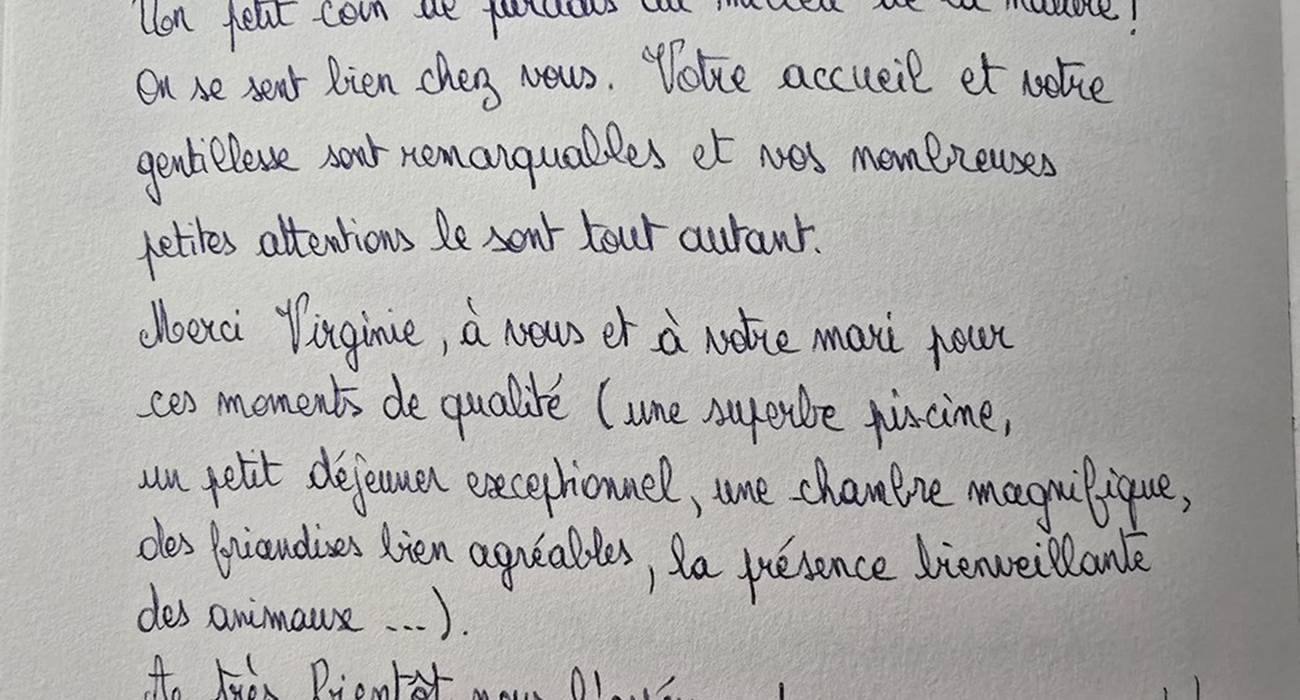 Un petit coin de paradis au milieu de la nature !
On se sent bien chez vous. Votre accueil et votre
gentillesse sont remarquables et vos nombreuses
petites attentions le sont tout autant.
Merci Virginie, à vous et à votre mari pour
ces moments de qualité (une superbe piscine,
un petit déjeuner exceptionnel, une chambre magnifique,
des friandises bien agréables, la présence bienveillante
des animaux ...).
A très bientôt nous l'